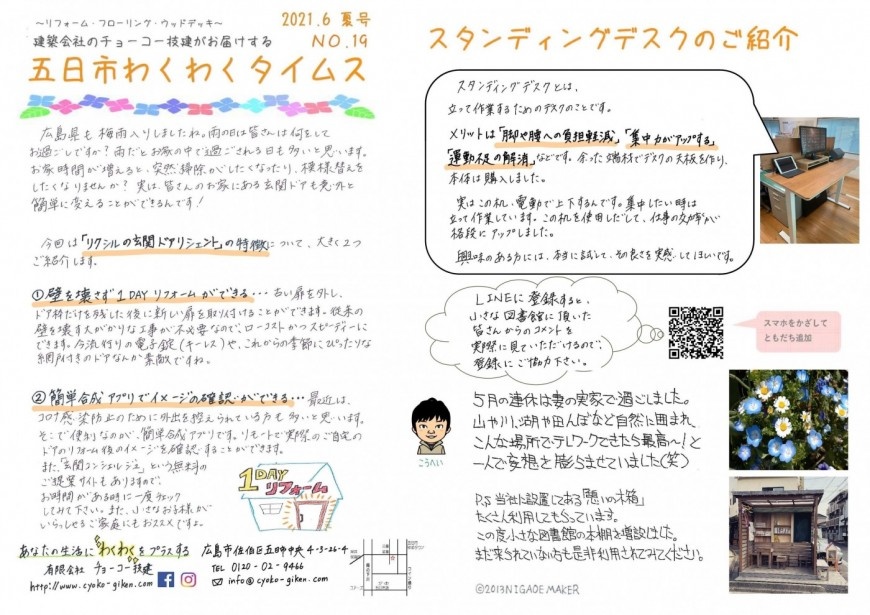 ～リフォーム・フローリング・ウッドデッキ～
2021.6 夏号
建築会社のチョーコー技建がお届けする
NO.19
五日市わくわくタイムス
広島県も梅雨入りしましたね。雨の日は皆さんは何をして
お過ごしですか？雨だとお家の中で過ごされる日も多いと思います。
お家時間が増えると、突然掃除がしたくなったり、模様替えを
したくなりませんか？実は、皆さんのお家にある玄関ドアも意外と
簡単に変えることができるんです！
今回は「リクシルの玄関ドアリシェント」の特徴について、大きく2つ
ご紹介します。
①壁を壊さず1DAYリフォームができる・・・古い扉を外し、
ドア枠だけを残した後に新しい扉を取り付けることができます。従来の
壁を壊す大がかりな工事が不必要なので、ローコストかつスピーディーに
できます。今流行りの電子錠（キーレス）や、これからの季節にぴったりな
網戸付きのドアなんか素敵ですね。
②簡単合成アプリでイメージの確認ができる・・・最近は、
コロナ感染防止のために外出を控えられている方も多いと思います。
そこで便利なのが、簡単合成アプリです。リモートで実際のご自宅の
ドアのリフォーム後のイメージを確認することができます。
また、「玄関コンシェルジュ」という無料の
ご提案サイトもありますので、
お時間がある時に一度チェック
してみて下さい。また、小さなお子様が
いらっしゃるご家庭にもおススメですよ。
1DAY
リフォーム
あなたの生活に わくわくを プラスする
有限会社 チョーコー技建
http://www.cyoko-giken.com
広島市佐伯区五日市中央4-3-26-4
TEL 0120-02-9466
info@cyoko-giken.com
スタンディングデスクのご紹介
スタンディングデスクとは、
立って作業するためのデスクのことです。
メリットは「脚や腰への負担軽減」、「集中力がアップする」
「運動不足の解消」などです。余った端材でデスクの天板を作り、
本体は購入しました。
実はこの机、電動で上下するんです。集中したい時は
立って作業しています。この机を使用しだして、仕事の効率が
格段にアップしました。
興味のある方には、本当に試して、その良さを実感してほしいです。
LINEに登録すると、
小さな図書館に頂いた
皆さんからのコメントを
実際に見ていただけるので、
登録にご協力下さい。
スマホをかざして
ともだち追加
こうへい
5月の連休は妻の実家で過ごしました。
山や川、湖や田んぼなど自然に囲まれ、
こんな場所でテレワークできたら最高〜！と
一人で妄想を膨らませていました（笑）
P.S 当社に設置してある「憩いの木箱」
たくさん利用してもらっています。
この度小さな図書館の本棚を増設しました。
まだ来られていない方も是非利用されてみてください。
©2013NIGAOE MAKER